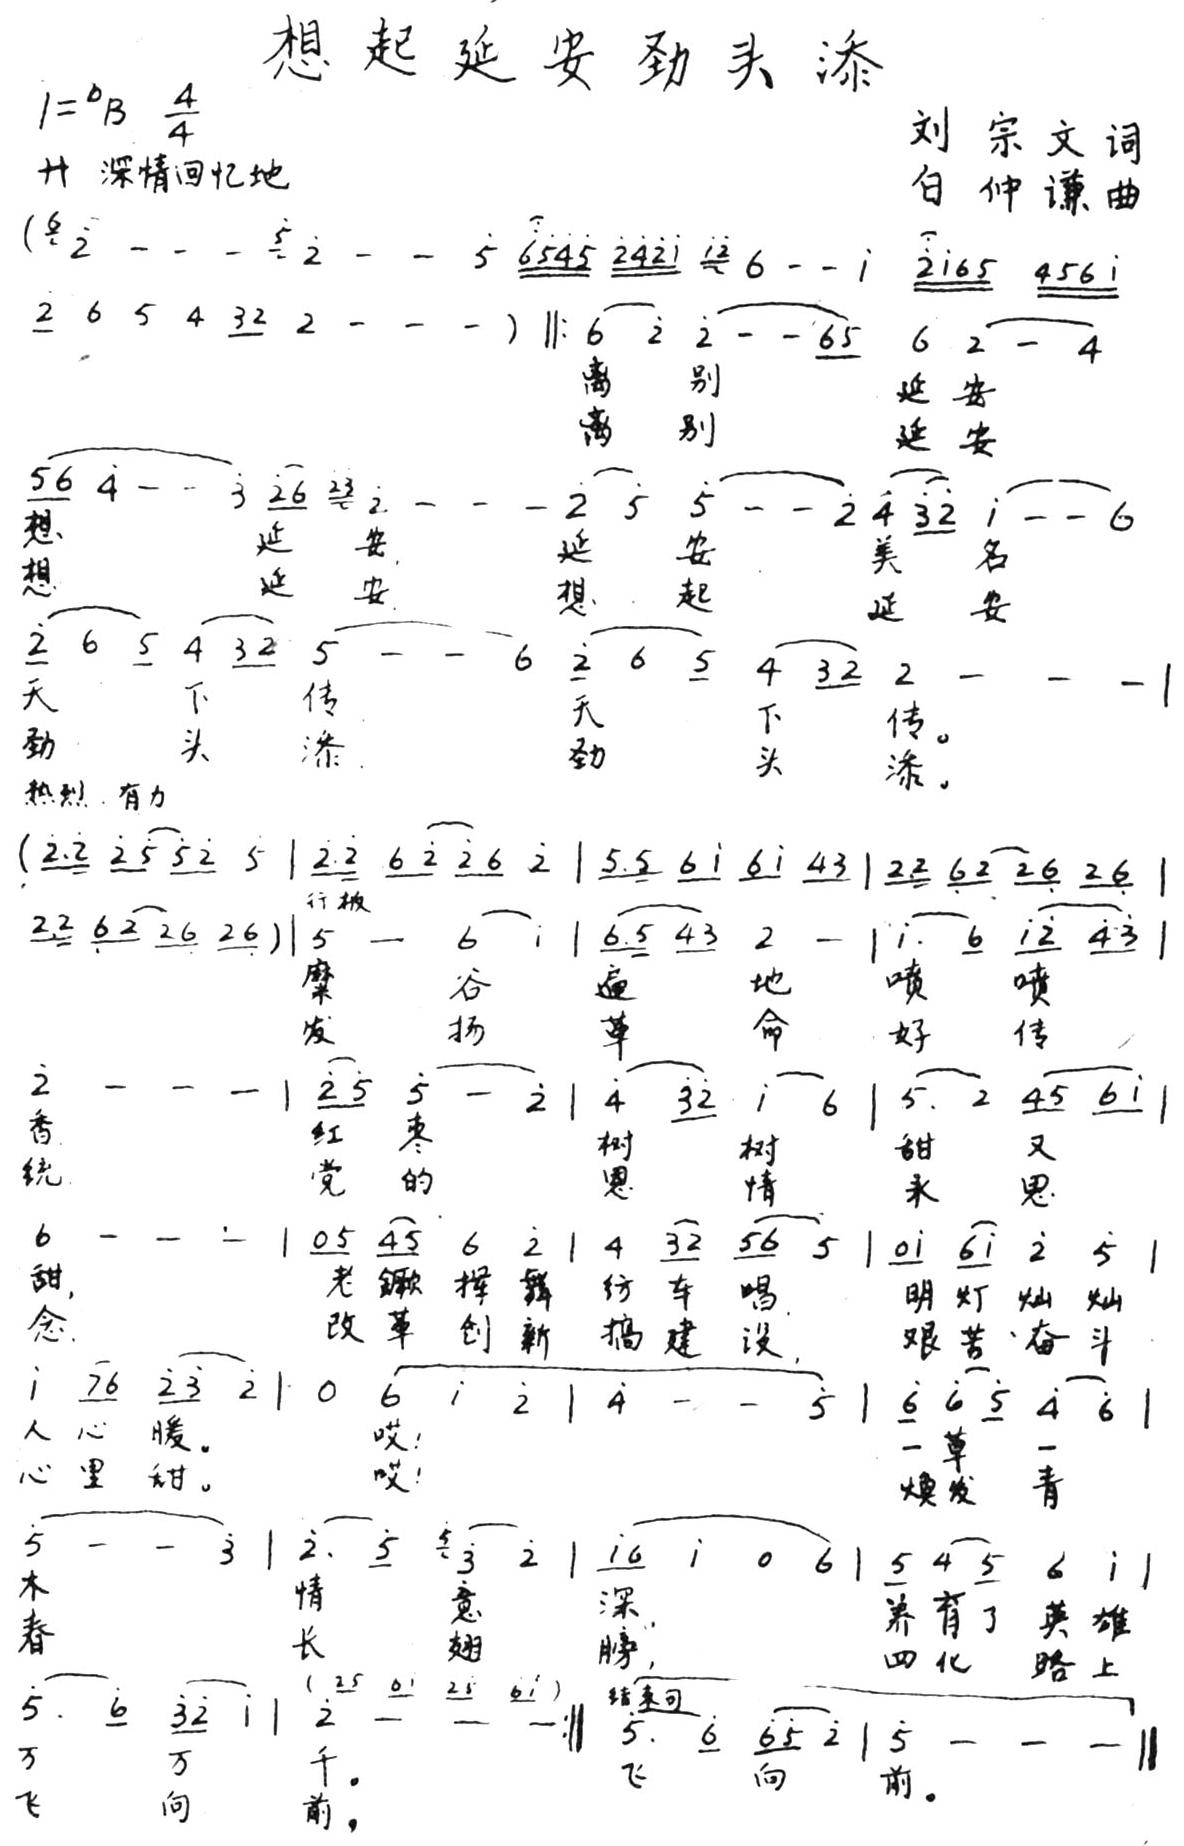 想起延安劲头添
1=♭B 4/4
刘宗文词
廾 深情回忆地
白仲谦曲
(6 2 - - - 5 2 - - 5 6545 2421 12 6 - - 1 2165 4561
2 6 5 4 32 2 - - - ) ‖: 6 2 2 - - 65 6 2 - 4
离 别 延 安
离 别 延 安
56 4 - - 3 26 23 2 - - - 2 5 5 - - 2 4 32 1 - - 6
想 延 安, 延 安 美 名
想 延 安 想 起 延 安
2 6 5 4 32 5 - - 6 2 6 5 4 32 2 - - - |
天 下 传 天 下 传。
劲 头 添 劲 头 添。
热烈.有力
(2.2 25 52 5 | 2.2 62 26 2 | 5.5 61 61 43 | 22 62 26 26 |
行板
22 62 26 26 ) | 5 - 6 1 | 6.5 43 2 - | 1. 6 12 43 |
糜 谷 遍 地 喷 喷
发 扬 革 命 好 传
2 - - - | 25 5 - 2 | 4 32 1 6 | 5. 2 45 61 |
香 红 枣 树 树 甜 又
统 党 的 恩 情 永 思
6 - - - | 05 45 6 2 | 4 32 56 5 | 01 61 2 5 |
甜, 老 镢 挥 舞 纺 车 唱 明 灯 灿 灿
念 改 革 创 新 搞 建 设, 艰 苦 奋 斗
1 76 23 2 | 0 6 1 2 | 4 - - 5 | 6 6 5 4 6 |
人 心 暖。 哎! 一 草 一
心 里 甜。 哎! 焕 发 青
5 - - 3 | 2. 5 5 3 2 | 16 1 0 6 | 5 4 5 6 1 |
木 情 意 深, 养 育 了 英 雄
春 长 翅 膀, 四 化 路 上
(25 61 25 61) 结束句
5. 6 32 1 | 2 - - - :‖ 5. 6 65 2 | 5 - - - ‖
万 万 千。 飞 向 前。
飞 向 前,